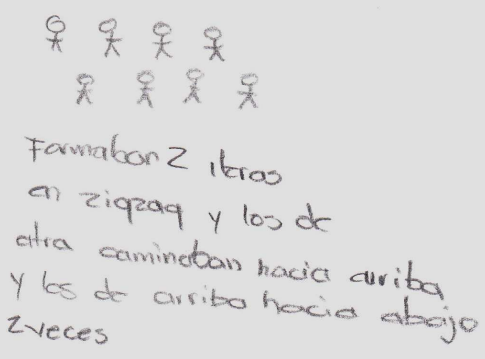 Formaban 2 ileras
en zigzag y los de
atra caminaban hacia arriba
y los de arriba hacia abajo
2 veces